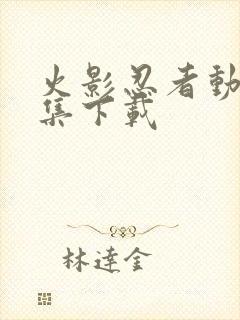 火影忍者動
集下載
林達金